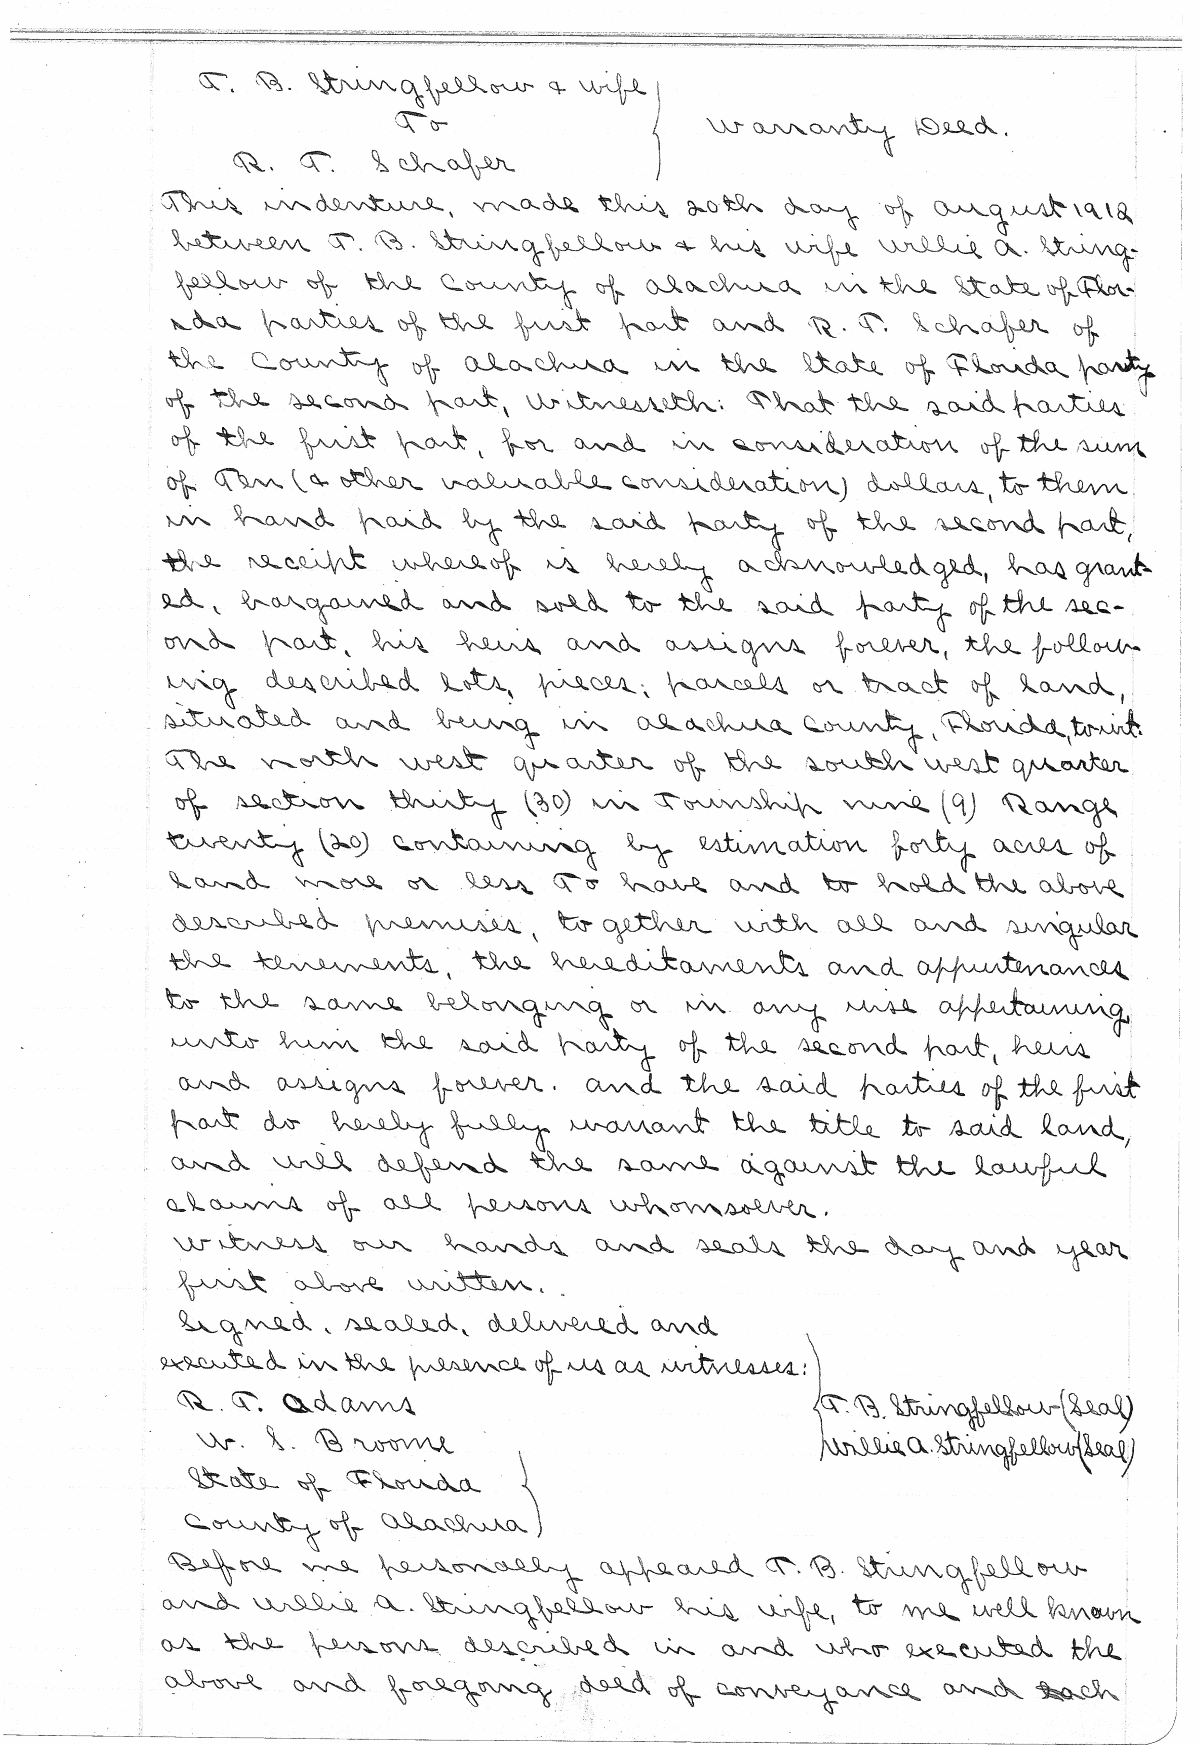 T. B. Stringfellow & wife
To
Warranty Deed.
R. T. Schafer
This indenture, made this 20th day of August 1912
between T. B. Stringfellow & his wife Willie A. String-
fellow of the County of Alachua in the State of Flor-
ida parties of the first part and R. T. Schafer of
the County of Alachua in the State of Florida party
of the second part, Witnesseth: That the said parties
of the first part, for and in consideration of the sum
of Ten (& other valuable consideration) dollars, to them
in hand paid by the said party of the second part,
the receipt whereof is hereby acknowledged, has grant-
ed, bargained and sold to the said party of the sec-
ond part, his heirs and assigns forever, the follow-
ing described lots, pieces; parcels or tract of land,
situated and being in Alachua County, Florida, towit:
The north west quarter of the south west quarter
of section thirty (30) in Township nine (9) Range
twenty (20) containing by estimation forty acres of
land more or less To have and to hold the above
described premises, together with all and singular
the tenements, the hereditaments and appurtenances
to the same belonging or in any wise appertaining,
unto him the said party of the second part, heirs
and assigns forever. And the said parties of the first
part do hereby fully warrant the title to said land,
and will defend the same against the lawful
claims of all persons whomsoever.
Witness our hands and seals the day and year
first above written.
Signed, sealed, delivered and
executed in the presence of us as witnesses:
R. T. Adams T. B. Stringfellow (Seal)
W. S. Broome Willie A. Stringfellow (Seal)
State of Florida
County of Alachua
Before me personally appeared T. B. Stringfellow
and Willie A. Stringfellow his wife, to me well known
as the persons described in and who executed the
above and foregoing deed of conveyance and each